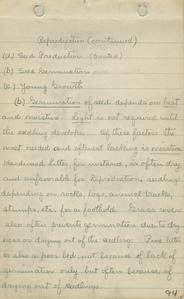 Reproduction (continued)
(a) Seed Production (Seated)
(b) Seed Germination
(c) Young Growth
(b) Germination of seed depends on heat
and moisture. Light is not required until
the seedling develops. Of these factors the
most needed and oftenest lacking is moisture.
Hardwood litter, for instance, is often dry
and unfavorable for Reproduction, seedlings
depending on rocks, logs, animal tracks,
stumps, etc. for a foothold. Grass cover
also often prevents germination due to dry-
ness or drying out of the seedling. Pine litter
is also a poor bed, not because of lack of
germination only, but often because of
drying out of seedlings.
94